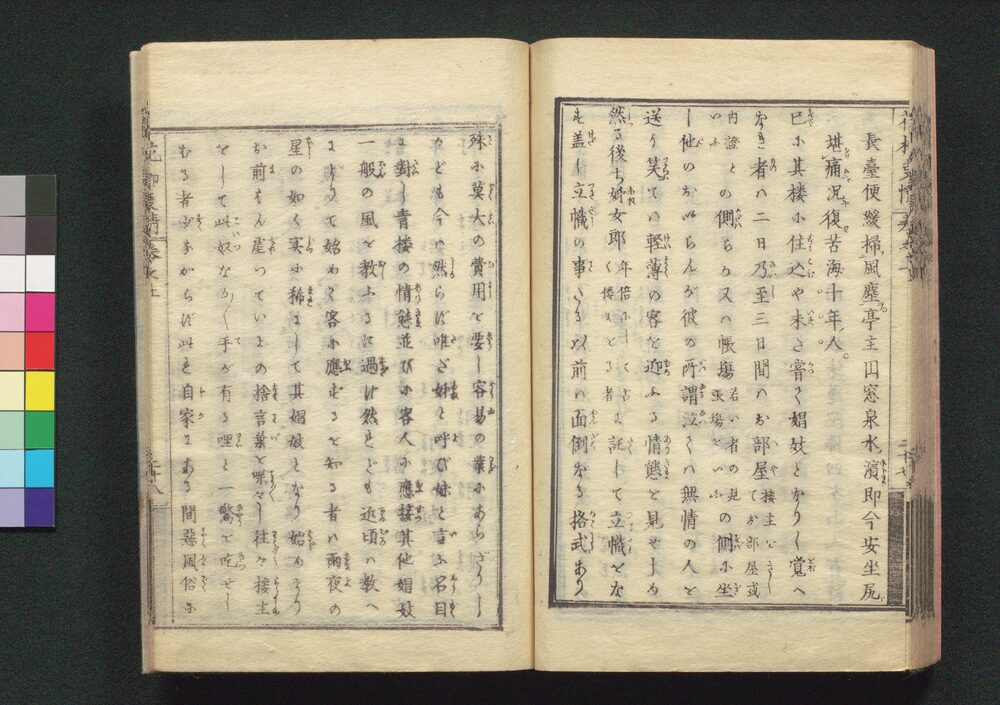 長臺便緩掃風塵亭主田窓泉水濱即今安坐尻
堪痛况復苦海十年人
已に其楼に住込や未だ嘗て娼妓となりし覚へ
なき者ハ二日乃至三日間ハお部屋楼主をさしてお部屋或
内證といふとの側らり又ハ帳塲若い者の見張塲をいふの側に坐
し他のお以らんが彼の所謂泣くハ無情の人を
送り笑てハ軽薄の客を迎ふる情態を見せしめ
然る後ち婦女耶く年倍にて古く棲まる者に託して立幟をな
も盖し立幟の事たる以前ハ面倒なる格式あり
殊に莫大の費用を要し容易の業にあらざりし
かども今ハ然らば唯だ姉と呼び妹と言ふ名目
に對し青楼の情態並びに客人に應接其他娼妓
一般の風を教ふるに過ば然れども近頃ハ教へ
によりて始めて客に應むるを知る者ハ雨夜の
星の如く実に稀にして其娼妓となり始めより
お前はん虚ついていよの捨言葉を喋々し往々楼主
をして此奴なか〳〵手が有る哩と一驚を吃せし
むる者少なからば此を自家にある間惡風俗に